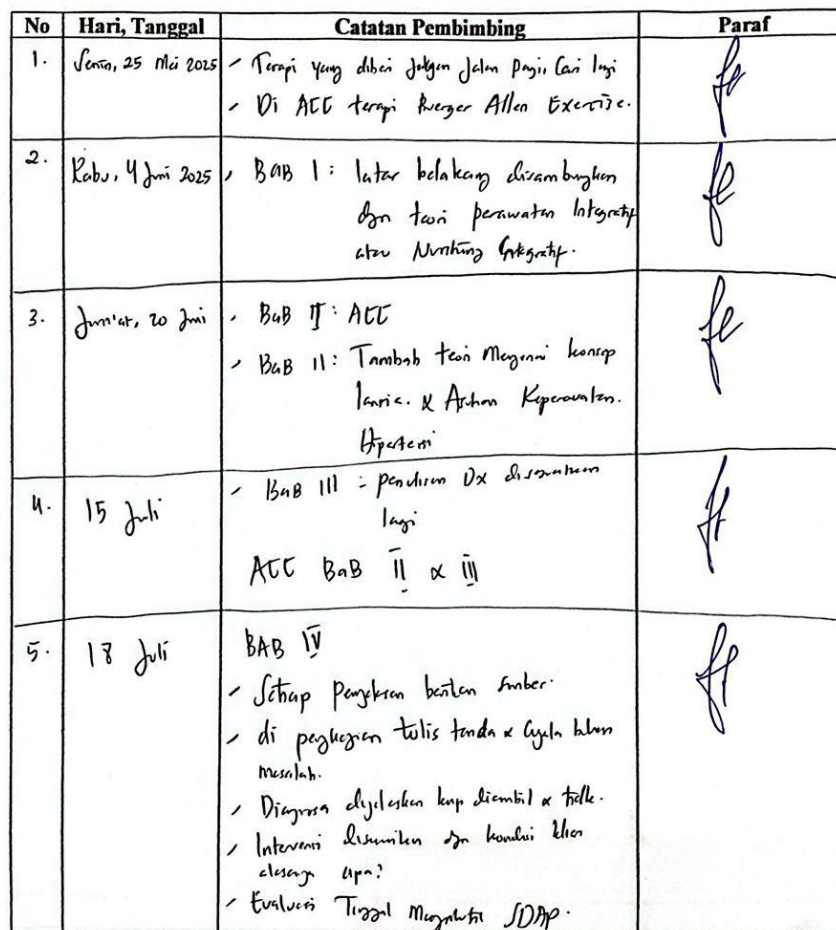 No Hari, Tanggal Catatan Pembimbing Paraf
1. Senin, 25 Mei 2025 - Terapi yang diberi jangan jalan pagi, cari lagi
- Di ACC terapi Buerger Allen Exercise.
2. Rabu, 4 Juni 2025 - BAB I: latar belakang disambungkan
dgn teori perawatan Integratif
atau Nursing Integratif.
3. Jum'at, 20 Juni - BAB I: ACC
- BAB II: Tambah teori Mengenai konsep
lansia. & Asuhan Keperawatan.
Hipertensi
4. 15 Juli - BAB III: penulisan Dx disesuaikan
lagi
ACC BAB II & III
5. 18 Juli BAB IV
- Setiap penjelasan sumber.
- di pengkajian tulis tanda & gejala
masalah.
- Diagnosa dijelaskan knp diambil & tidk.
- Intervensi disesuaikan dgn kondisi klien
alasannya apa?
- Evaluasi Tinggal SOAP.